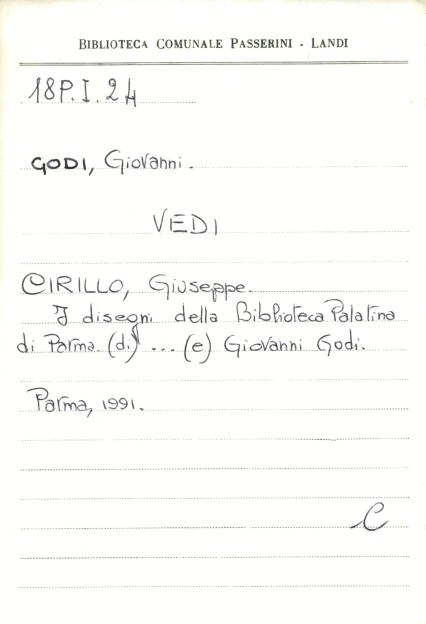 BIBLIOTECA COMUNALE PASSERINI - LANDI
18P.I.24
GODI, Giovanni.
VEDI
CIRILLO, Giuseppe.
I disegni della Biblioteca Palatina
di Parma. (di) ... (e) Giovanni Godi.
Parma, 1991.
C